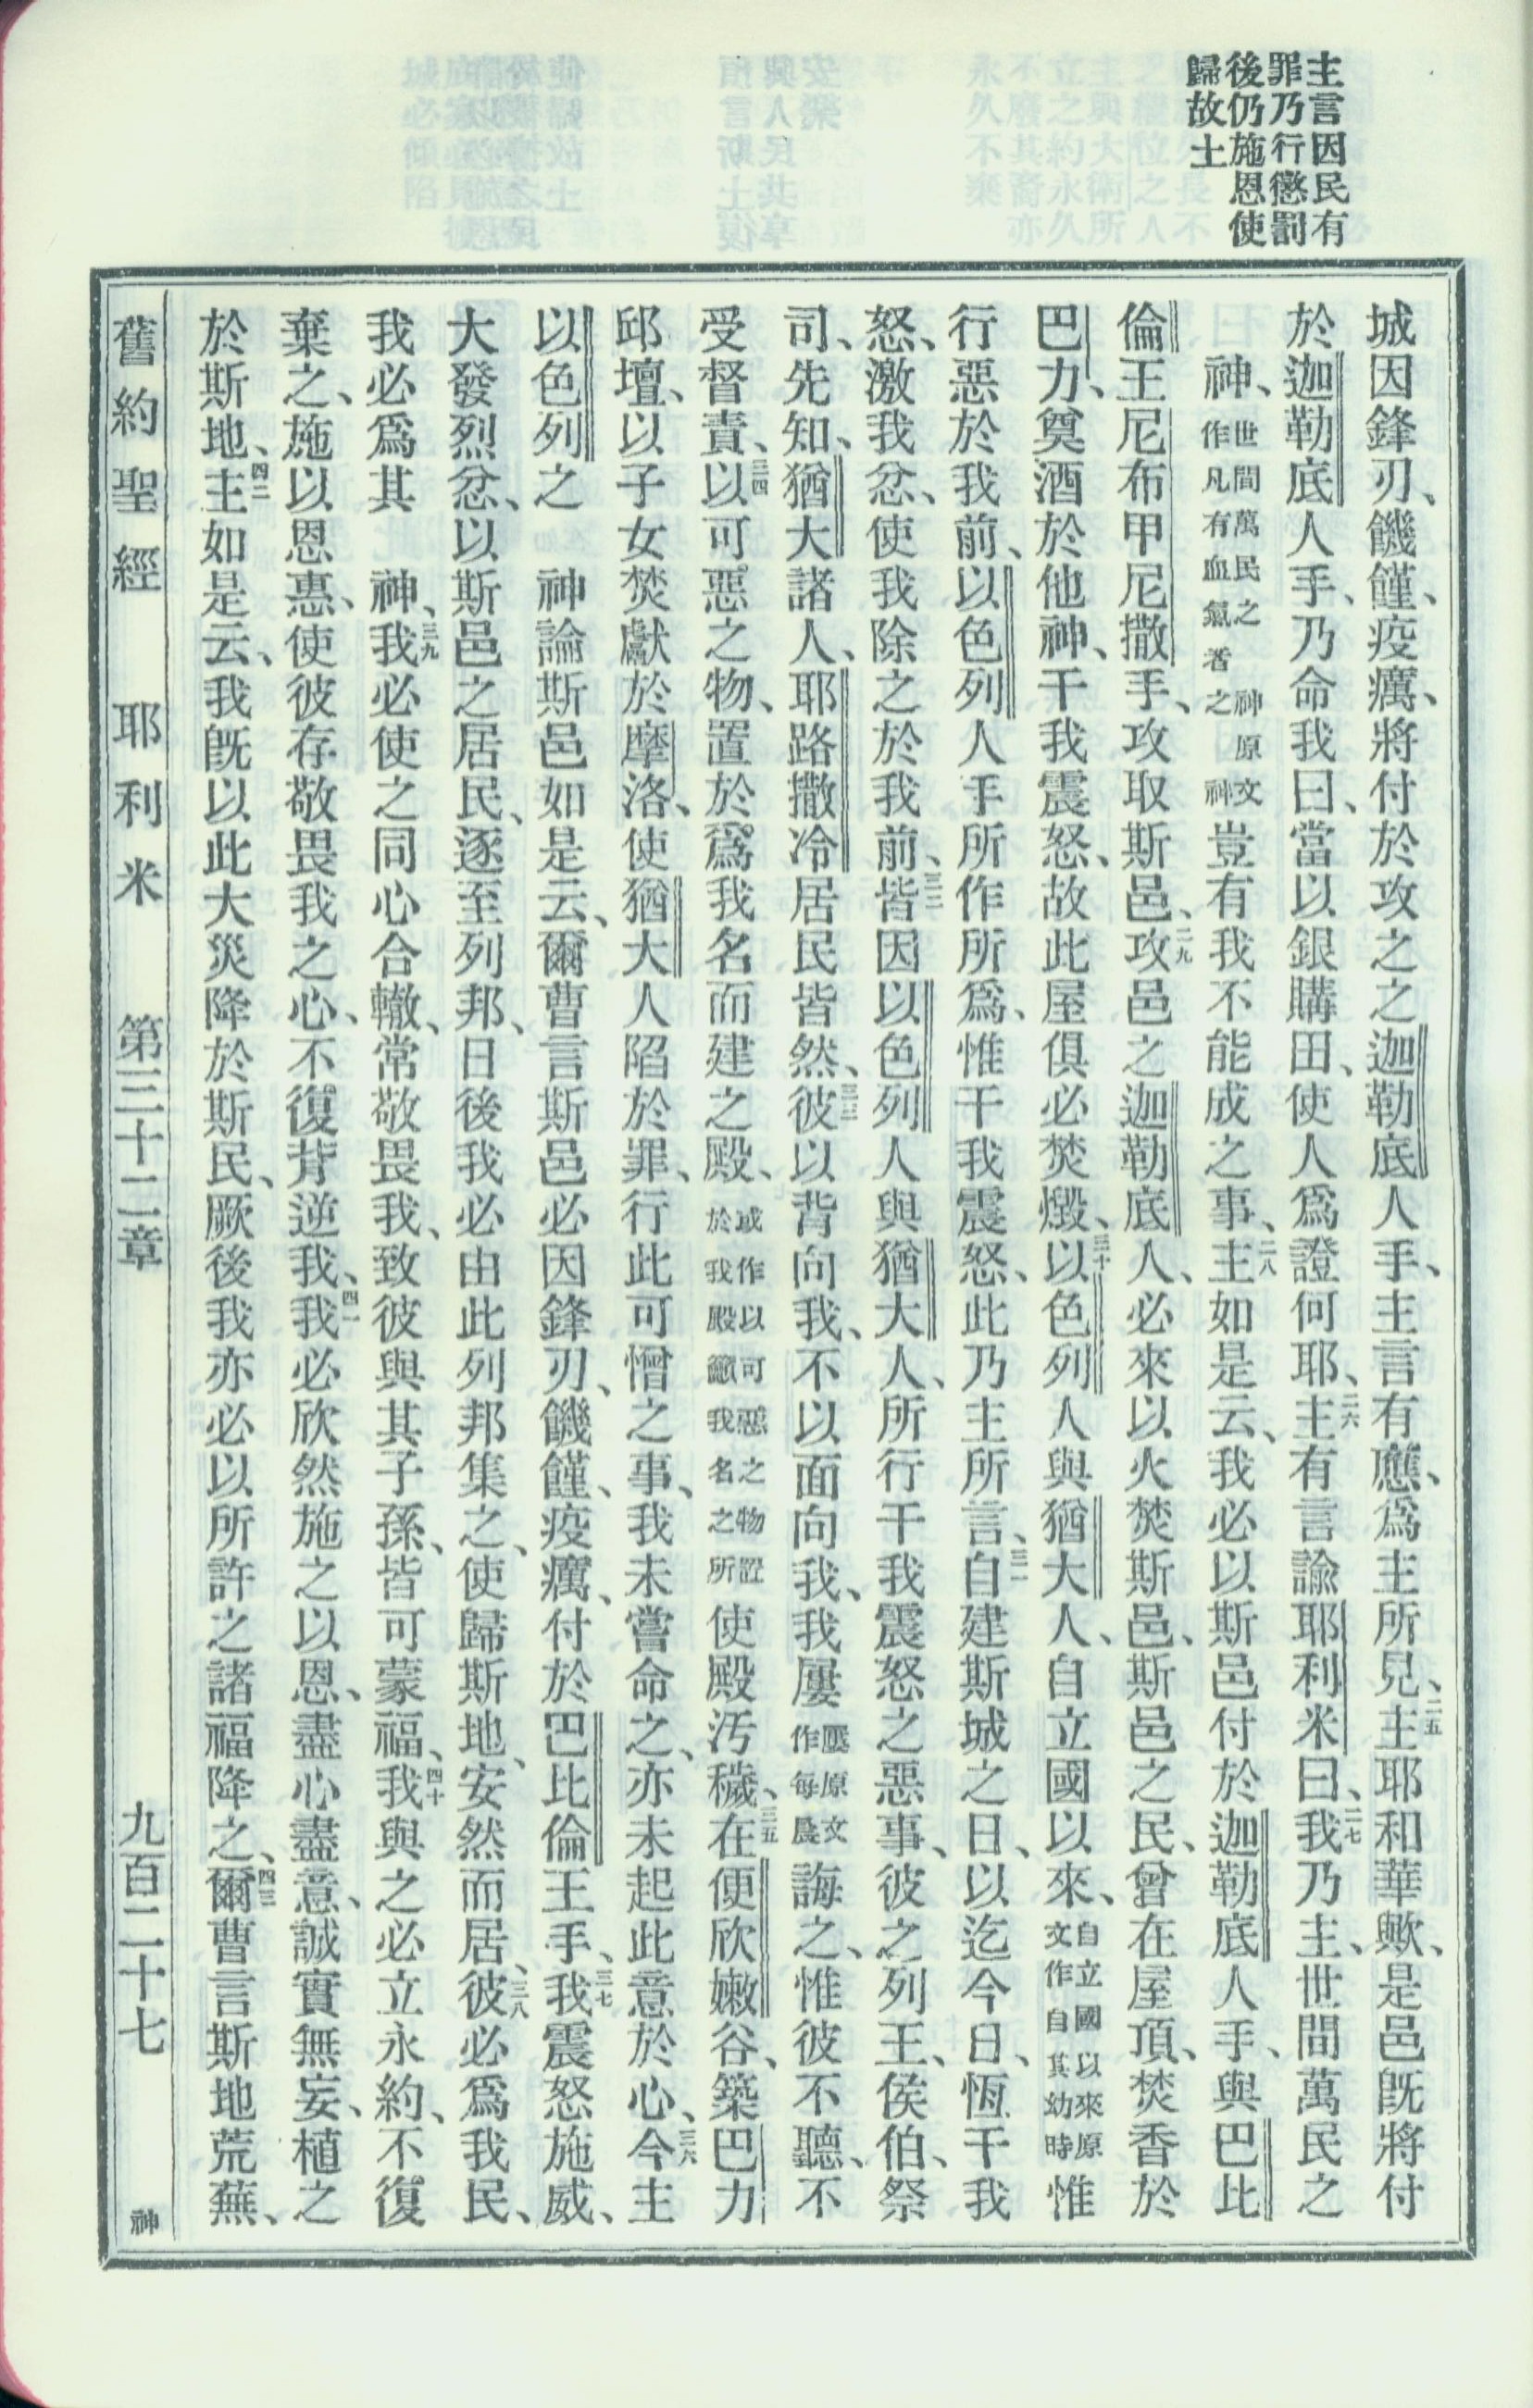 主言因民有
罪乃行懲罰
後仍施恩使
歸故土
城因鋒刃、饑饉、疫癘、將付於攻之之迦勒底人手、主言有應、爲主所見、二五主耶和華歟、是邑旣將付
於迦勒底人手、乃命我曰、當以銀購田、使人爲證何耶、二六主有言諭耶利米曰、二七我乃主、世間萬民之
神、世間萬民之神原文作凡有血氣者之神豈有我不能成之事、二八主如是云、我必以斯邑付於迦勒底人手、與巴比
倫王尼布甲尼撒手、攻取斯邑、二九攻邑之迦勒底人、必來以火焚斯邑、斯邑之民、曾在屋頂、焚香於
巴力、奠酒於他神、干我震怒、故此屋俱必焚燬、三十以色列人與猶大人、自立國以來、自立國以來原文作自其幼時惟
行惡於我前、以色列人手所作所爲、惟干我震怒、此乃主所言、三一自建斯城之日、以迄今日、恆干我
怒、激我忿、使我除之於我前、三二皆因以色列人與猶大人、所行干我震怒之惡事、彼之列王、侯伯、祭
司、先知、猶大諸人、耶路撒冷居民皆然、三三彼以背向我、不以面向我、我屢屢原文作每晨誨之、惟彼不聽、不
受督責、三四以可惡之物、置於爲我名而建之殿、或作以可惡之物置於我殿籲我名之所使殿汚穢、三五在便欣嫩谷、築巴力
邱壇、以子女焚獻於摩洛、使猶大人陷於罪、行此可憎之事、我未嘗命之、亦未起此意於心、三六今主
以色列之　神論斯邑如是云、爾曹言斯邑必因鋒刃、饑饉、疫癘、付於巴比倫王手、三七我震怒施威、
大發烈忿、以斯邑之居民、逐至列邦、日後我必由此列邦集之、使歸斯地、安然而居、三八彼必爲我民、
我必爲其　神、三九我必使之同心合轍、常敬畏我、致彼與其子孫、皆可蒙福、四十我與之必立永約、不復
棄之、施以恩惠、使彼存敬畏我之心、不復背逆我、四一我必欣然施之以恩、盡心盡意、誠實無妄、植之
於斯地、四二主如是云、我旣以此大災降於斯民、厥後我亦必以所許之諸福降之、四三爾曹言斯地荒蕪、
舊約聖經　耶利米　第三十二章　九百二十七　神